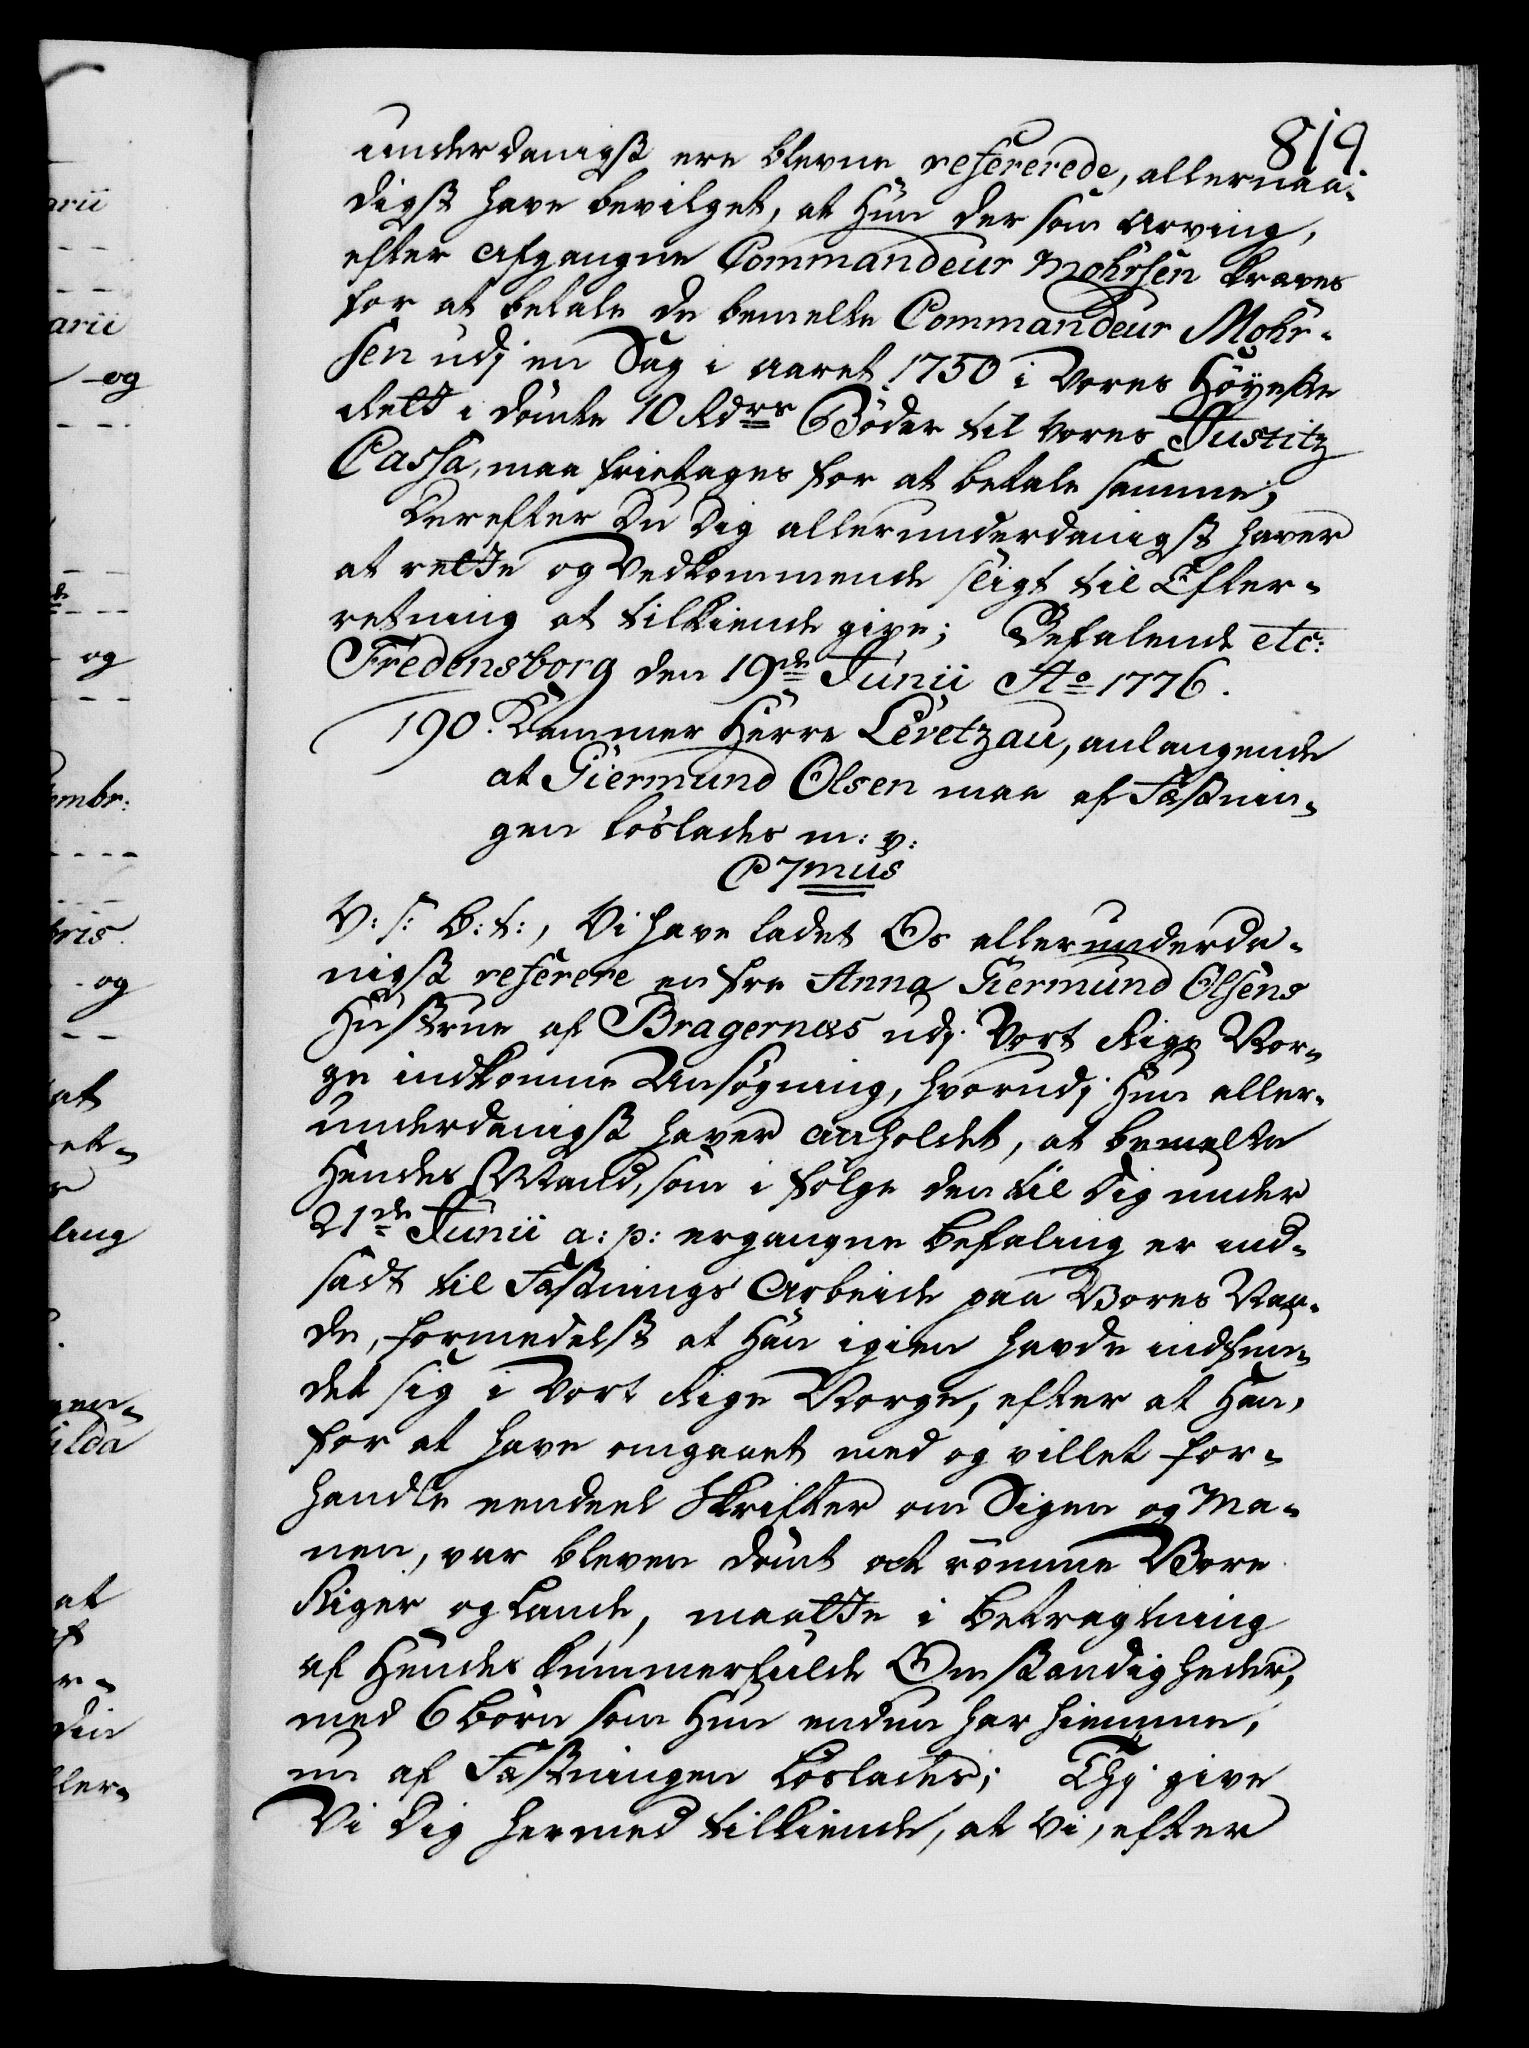 819
underdanigst ere blevne refererede, allernaa-
digst have bevilget, at Hun der som Arving,
efter Afgangne Commandeur Mohrsen kraves
for at betale de bemelte Commandeur Mohr-
sen udj en Sag i Aaret 1750 i Vores Höyeste
Rett i dömte 10 Rdrs Böder til Vores Justitz
Cassa, maa fritages for at betale samme;
Derefter Du Dig allerunderdanigst haver
at rette og Vedkommende sligt til Efter-
retning at tilkiende give; Befalende etc:
Fredensborg den 19de Junii Ao 1776.
190. Kammer Herre Levetzau, anlangende
at Giermund Olsen maa af Fæstnin-
gen löslades m: v:
C 7mus
V: S: B: T:, Vi have ladet Os allerunderda-
nigst referere en fra Anna Giermund Olsens
Hustrue af Bragernæs udj Vort Rige Nor-
ge indkomne Ansögning, hvorudj Hun aller-
underdanigst haver anholdet, at bemelte
Hendes Mand, som i fölge den til Dig under
21de Junii a: p: ergangne Befaling er ind-
sadt til Fæstnings Arbeide paa Vores Naa-
de, formedelst at Han igien havde indfun-
det sig i Vort Rige Norge, efter at Han,
for at have omgaaet med og villet for-
handle eendeel Skrifter om Sigen og Ma-
nen, var bleven dömt at römme Vore
Riger og Lande, maatte i Betragtning
af Hendes kummerfulde Omstændigheder,
med 6 Börn som Hun endnu har hiemme,
nu af Fæstningen löslades; Thj give
Vi Dig hermed tilkiende, at Vi, efter
arii
arii
og
og
embr:
bris.
og
at
ret-
lang
gen-
hilda
at
af
er-
din
ller-